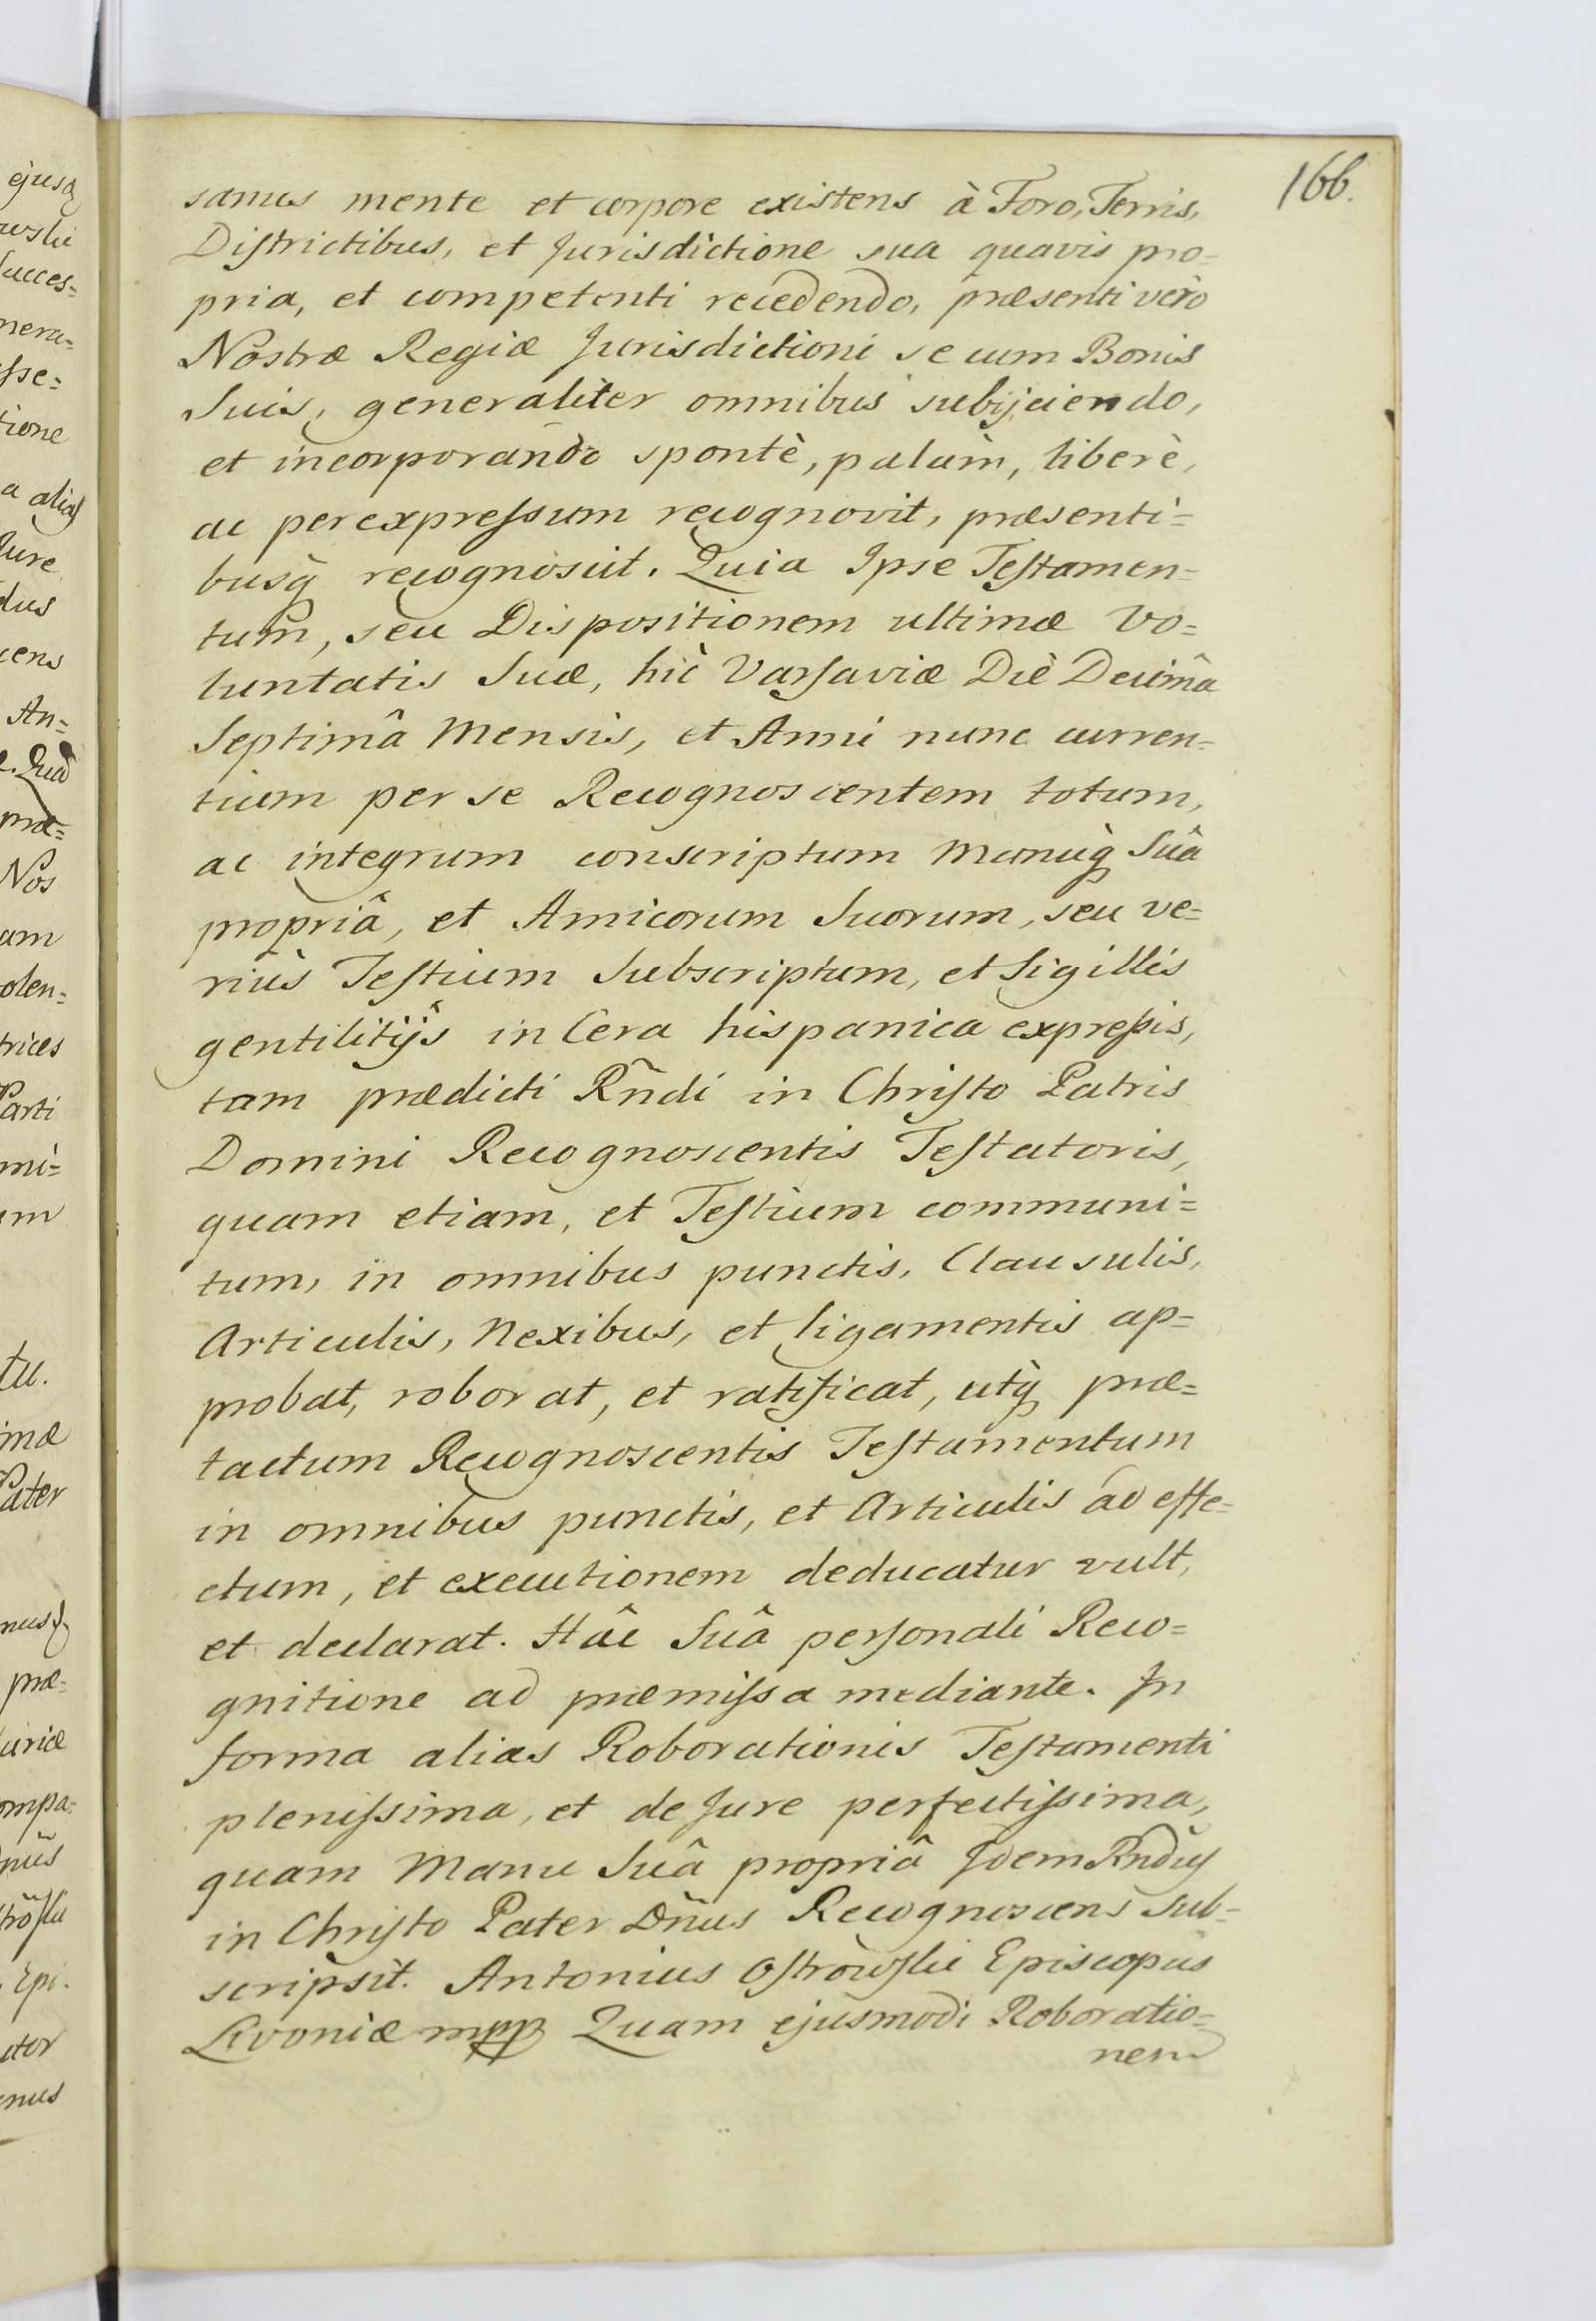 166.
sanus mente et corpore existens à Foro, Terris,
Districtibus, et Jurisdictione sua quavis pro=
pria, et competenti recedendo, præsenti vèro
Nostræ Regiæ Jurisdictioni se cum Bonis
Suis, generaliter omnibus subijciendo,
et incorporando spontè, palàm, liberè,
ac per expressum recognovit, præsenti=
busq̀ recognoscit. Quia Ipse Testamen=
tum, seu Dispositionem ultimæ Vo=
luntatis Suæ, hìc Varsaviæ Diè Decimâ
Septimâ Mensis, et Anni nunc curren=
tium per se Recognoscentem totum,
ac integrum conscriptum Manuq̀ Suâ
propriâ, et Amicorum Suorum, seu ve=
riùs Testium Subscriptum, et Sigillis
gentilitijs in Cera hispanica expressis,
tam prædicti Rñdi in Christo Patris
Domini Recognoscentis Testatoris,
quam etiam, et Testium communi=
tum, in omnibus punctis, Clausulis,
Articulis, Nexibus, et ligamentis ap=
probat, roborat, et ratificat, utq̀ præ=
tactum Recognoscentis Testamentum
in omnibus punctis, et Articulis ad effe=
ctum, et executionem deducatur vult,
et declarat. Hâc Suâ personali Reco=
gnitione ad præmissa mediante. In
forma alias Roborationis Testamenti
plenissima, et de Jure perfectissima,
quam Manu Suâ propriâ Idem Rñdus
in Christo Pater Dñus Recognoscens Sub=
scripsit. Antonius Ostrowski Episcopus
Livoniæ mpp Quam ejusmodi Roboratio=
nem